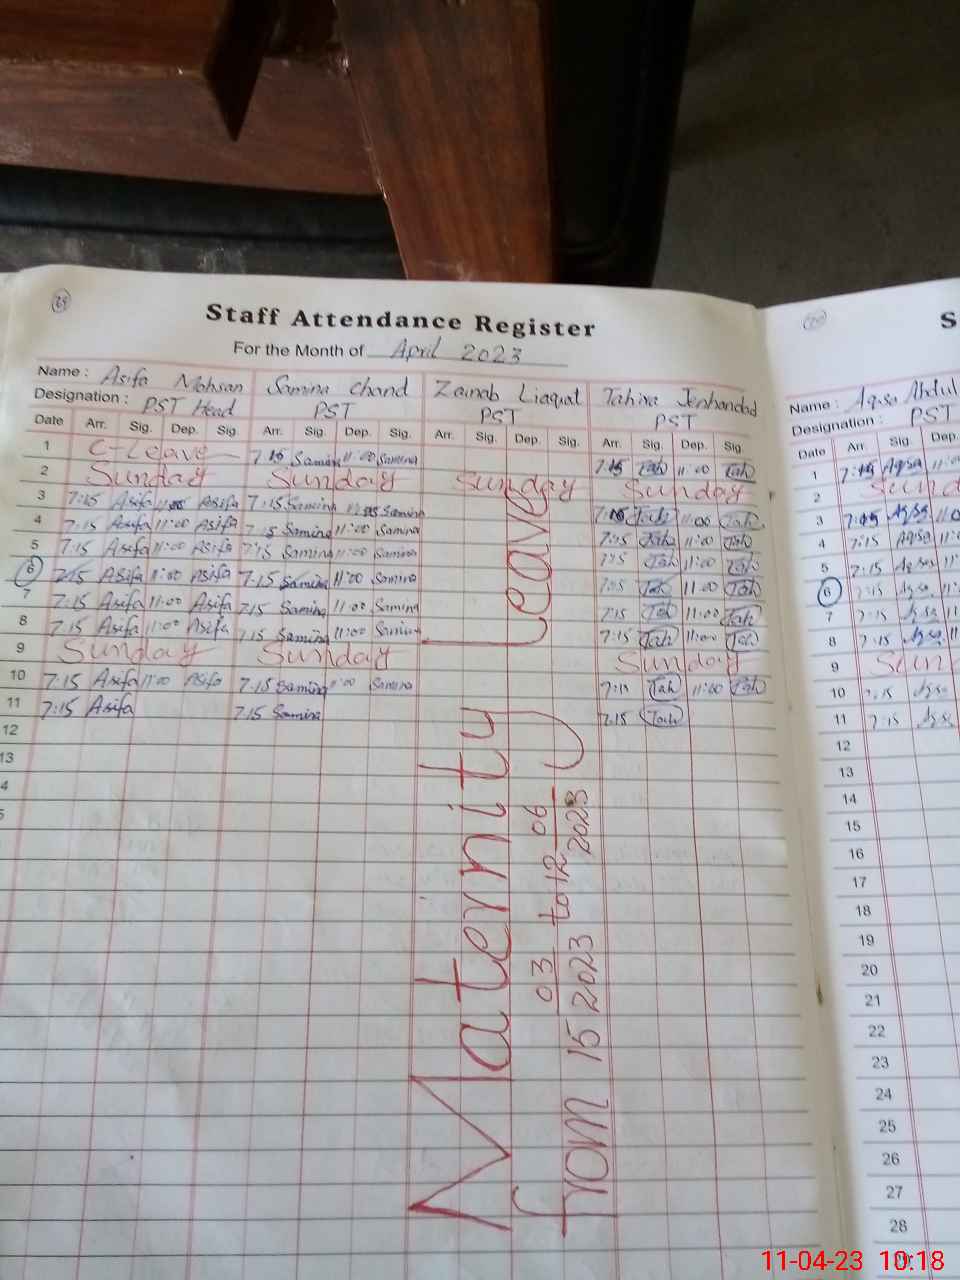 29
Staff Attendance Register
For the Month of April 2023
Name : Asifa Mohsan Samina Chand Zainab Liaquat Tahira
Designation : PST Head PST PST PST
Date Arr. Sig. Dep. Sig. Arr. Sig. Dep. Sig. Arr. Sig. Dep. Sig. Arr. Sig. Dep. Sig.
1 C-Leave 7:15 Samina 11:00 Samina 7:15 Tah 11:00 Tah
2 Sunday Sunday Sunday Sunday
3 7:15 Asifa 11:00 Asifa 7:15 Samina 11:00 Samina 7:15 Tah 11:00 Tah
4 7:15 Asifa 11:00 Asifa 7:15 Samina 11:00 Samina 7:15 Tah 11:00 Tah
5 7:15 Asifa 11:00 Asifa 7:15 Samina 11:00 Samina 7:15 Tah 11:00 Tah
6 7:15 Asifa 11:00 Asifa 7:15 Samina 11:00 Samina 7:15 Tah 11:00 Tah
7 7:15 Asifa 11:00 Asifa 7:15 Samina 11:00 Samina 7:15 Tah 11:00 Tah
8 7:15 Asifa 11:00 Asifa 7:15 Samina 11:00 Samina 7:15 Tah 11:00 Tah
9 Sunday Sunday Sunday
10 7:15 Asifa 11:00 Asifa 7:15 Samina 11:00 Samina 7:15 Tah 11:00 Tah
11 7:15 Asifa 7:15 Samina 7:15 Tah
12
13
4
5
Maternity Leave
from 15 03 2023 to 12 06 2023
S
Name : Aqsa Abdul
Designation : PST
Date Arr. Sig. Dep.
1 7:15 Aqsa 11:0
2 Sund
3 7:15 Aqsa 11:0
4 7:15 Aqsa 11:
5 7:15 Aqsa 11:
6 7:15 Aqsa 11:0
7 7:15 Aqsa 11:0
8 7:15 Aqsa 11:0
9 Sund
10 7:15 Aqsa
11 7:15 Aqsa
12
13
14
15
16
17
18
19
20
21
22
23
24
25
26
27
28
29
11-04-23 10:18